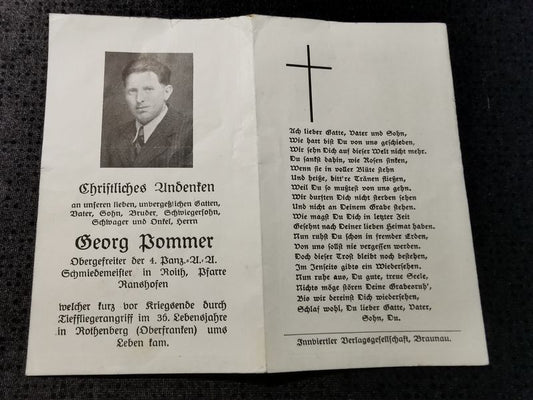 Christliches Andenken
an unseren lieben, unvergeßlichen Gatten,
Vater, Sohn, Bruder, Schwiegersohn,
Schwager und Onkel, Herrn
Georg Pommer
Obergefreiter der 4. Panz.-A.-A.
Schmiedemeister in Roith, Pfarre
Ranshofen
welcher kurz vor Kriegsende durch
Tieffliegerangriff im 36. Lebensjahre
in Rothenberg (Oberfranken) ums
Leben kam.
Ach lieber Gatte, Vater und Sohn,
Wie hart bist Du von uns geschieden,
Wir sehn Dich auf dieser Welt nicht mehr.
Du sankst dahin, wie Rosen sinken,
Wenn sie in voller Blüte stehn
Und heiße, bitt're Tränen fließen,
Weil Du so mußtest von uns gehn.
Wir durften Dich nicht sterben sehen
Und nicht an Deinem Grabe stehen.
Wie magst Du Dich in letzter Zeit
Gesehnt nach Deiner lieben Heimat haben.
Nun ruhst Du schon in fremder Erden,
Von uns sollst nie vergessen werden.
Doch dieser Trost bleibt noch bestehen,
Im Jenseits gibts ein Wiedersehen.
Nun ruhe aus, Du gute, treue Seele,
Nichts möge stören Deine Grabesruh',
Bis wir dereinst Dich wiedersehen,
Schlaf wohl, Du lieber Gatte, Vater,
Sohn, Du.
Innviertler Verlagsgesellschaft, Braunau.